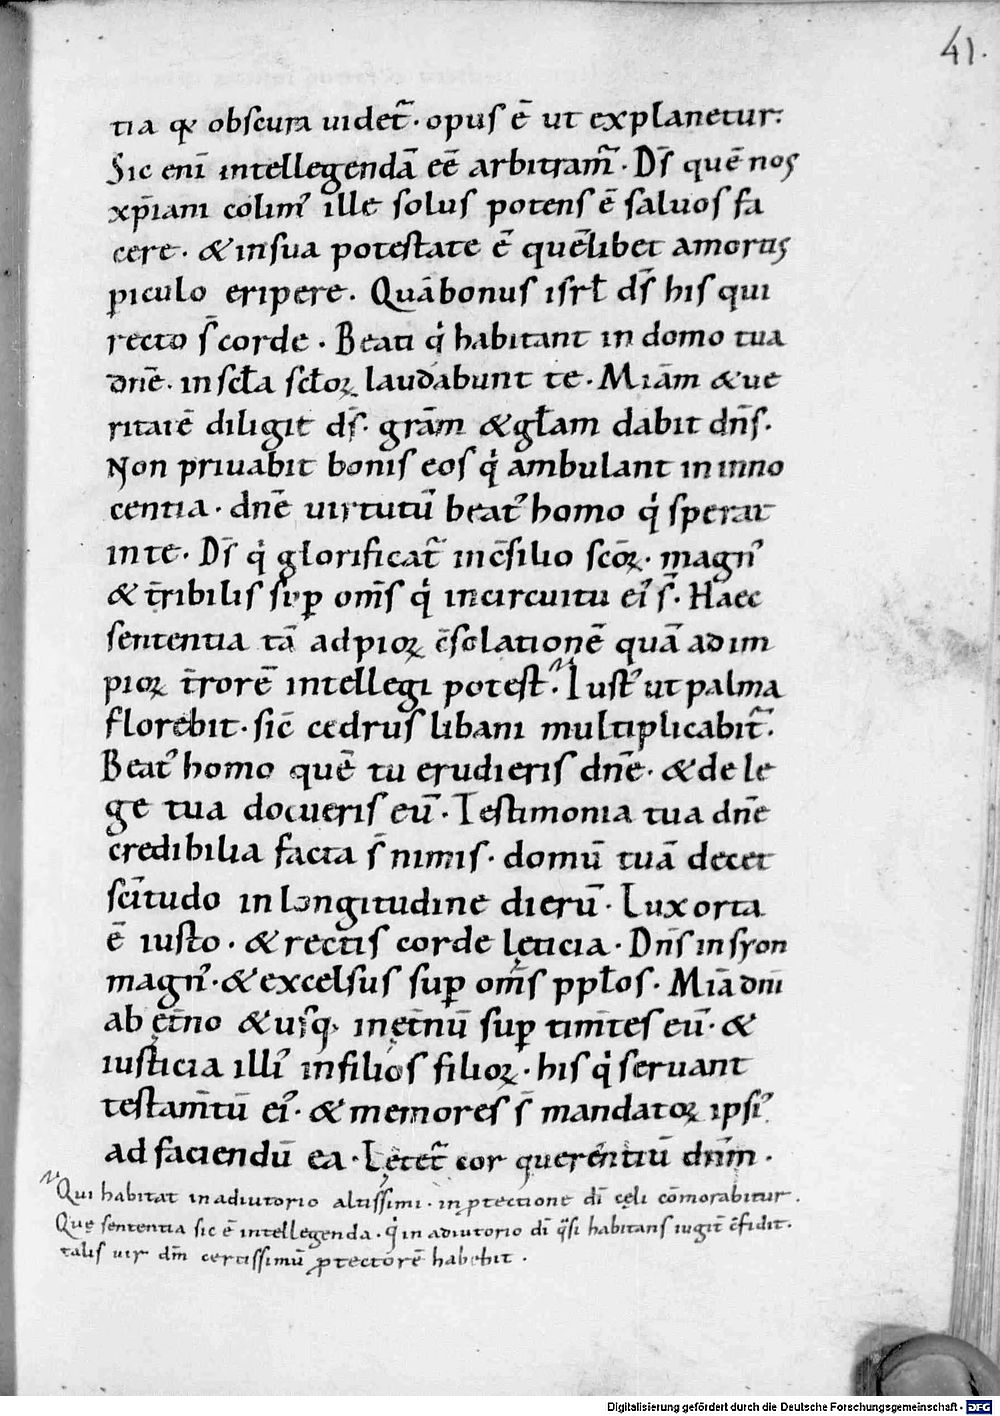 41.
tia q obscura uidet̄· opus ē ut explanetur:
Sic eni᷄ intellegendā eē arbitram̄· Ds̄ quē nos
xp̄iani colim᾿ ille solus potens ē saluos fa
cere· & in sua potestate ē quēlibet a mortis
ꝑiculo eripere. Quā bonus isrl̄ ds̄ his qui
recto s̄ corde· Beati q̇ habitant in domo tua
dnē· in scl̄a scl̄oꝝ laudabunt te· Miām & ue
ritatē diligit ds̄· grām & gl̄am dabit dn̄s·
Non priuabit bonis eos q̇ ambulant in inno
centia· dnē uirtutū beat᾿ homo q̇ sperat
in te· Ds̄ q̇ glorificat̄ in c̄silio scōꝝ· magn᾿
& t̄ribilis suꝑ om̄s q̇ in circuitu ei᾿ s̄· Haec
sententia tā ad pioꝝ c̄solationē quā ad im
pioꝝ t̄rorē intellegi potest· Iust᾿ ut palma
florebit· sic̄ cedrus libani multiplicabit̄·
Beat᾿ homo quē tu erudieris dnē· & de le
ge tua docueris eū· Testimonia tua dnē
credibilia facta s̄ nimis· domū tuā decet
sc̄itudo in longitudine dierū· Lux orta
ē iusto· & rectis corde lęticia· Dn̄s in syon
magn᾿· & excelsus suꝑ om̄s ppl̄os· Miā dn̄i
ab ęt̄no & usq; in ęt̄nū suꝑ tim̄tes eū· &
iusticia illi᾿ in filios filioꝝ· his q̇ seruant
testam̄tū ei᾿· & memores s̄ mandatoꝝ ipsi᾿
ad faciendū ea· Lętet̄ cor querentiū dn̄m·
Qui habitat in adiutorio altissimi· in ꝓtectione dī cęli cōmorabitur.
Quę sententia sic ē intellegenda· q̇ in adiutorio dī q̇si habitans iugit̄ c̄fidit·
talis uir dm̄ certissimū ꝓtectorē habebit·
Digitalisierung gefördert durch die Deutsche Forschungsgemeinschaft - DFG